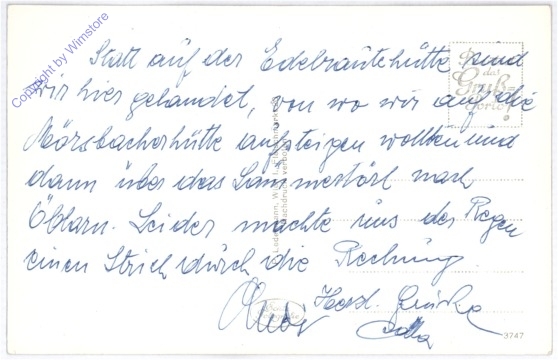 Copyright by Wimstore
Statt auf der Edelrautehütte sind
wir hier gelandet, von wo wir auf die
Mörsbacherhütte aufsteigen wollten und
dann über das Lammertörl nach
Öblarn. Leider machte uns der Regen
einen Strich durch die Rechnung.
Herzl.
3747